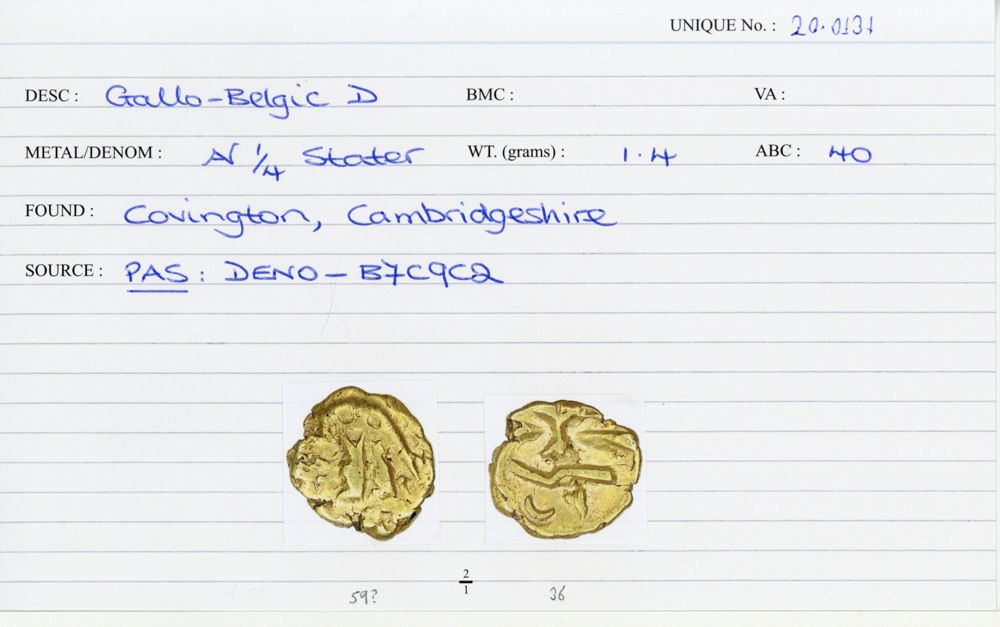 UNIQUE No. : 20.0131
DESC : Gallo-Belgic D BMC : VA :
METAL/DENOM : AV 1/4 Stater WT. (grams) : 1.4 ABC : 40
FOUND : Covington, Cambridgeshire
SOURCE : PAS : DENO-B7C9C2
2
1
59? 36